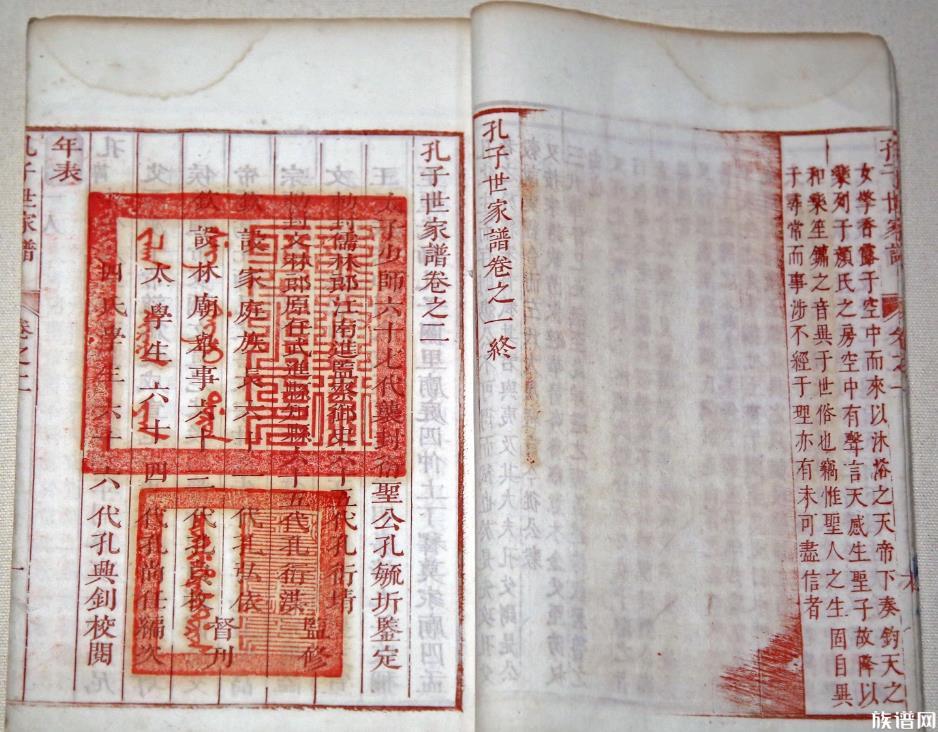 女擎香露于空中而來以沐浴之天帝下奏鈞天之
樂列于顏氏之房空中有聲言天感生聖子故降以
和樂笙鏞之音異于世俗也竊惟聖人之生固自異
于尋常而事涉不經于理亦有未可盡信者
孔子世家譜卷之一終
孔子世家譜卷之二
太子少師六十七代襲封衍聖公孔毓圻鑒定
勅封儒林郎江南道監察御史六十五代孔衍
勅封文林郎原任武進縣知縣六十五代孔衍洪
監修
欽設家庭族長六十一代孔弘依
欽設林廟舉事六十二代孔
督刊
太學生六十四代孔尚任編次
四氏學生六十六代孔興釗校閱
年表
孔子世家譜
卷之二
族谱网